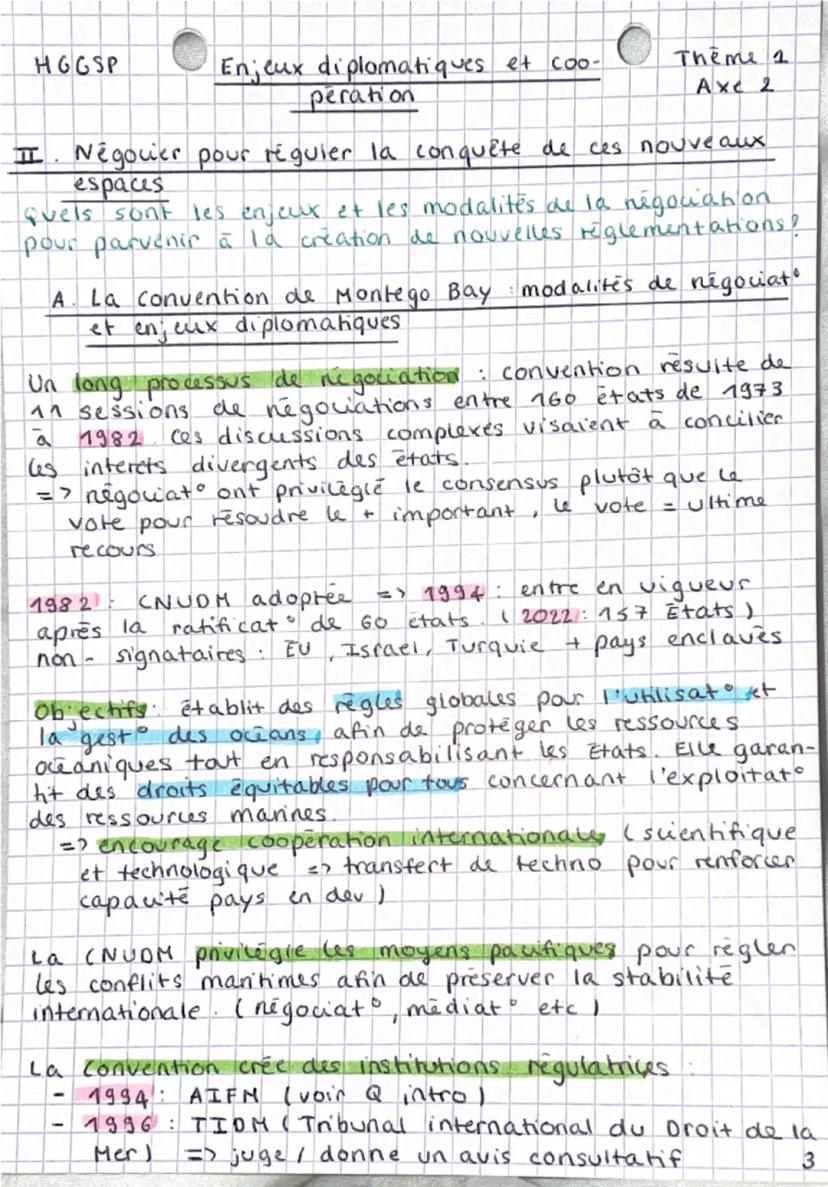 HGGSP
Enjeux diplomatiques et coo-
pération
Thème 1
Axe 2
II. Négocier pour réguler la conquête de ces nouveaux
espaces
Quels sont les enjeux et les modalités de la négociation
pour parvenir à la création de nouvelles réglementations?
A. La convention de Montego Bay : modalités de négociat°
et enjeux diplomatiques
Un long processus de négociation : convention résulte de
11 sessions de négociations entre 160 états de 1973
à 1982. Ces discussions complexes visaient à concilier
les interets divergents des états.
=> négociat° ont privilégié le consensus plutôt que le
vote pour résoudre le + important, le vote = ultime
recours
1982 : CNUDM adoptée => 1994 : entre en vigueur
après la ratificat° de 60 états. (2022 : 157 États)
non-signataires : EU, Israel, Turquie + pays enclavés
Objectifs : établit des règles globales pour l'utilisat° et
la gest° des océans, afin de protéger les ressources
océaniques tout en responsabilisant les États. Elle garan-
tit des droits équitables pour tous concernant l'exploitat°
des ressources marines.
=> encourage coopération internationale (scientifique
et technologique => transfert de techno pour renforcer
capacité pays en dev)
La CNUDM privilégie les moyens pacifiques pour régler
les conflits maritimes afin de préserver la stabilité
internationale. (négociat°, médiat° etc)
La convention crée des institutions régulatrices :
- 1994 : AIFM (voir Q intro)
- 1996 : TIDM (Tribunal international du Droit de la
Mer) => juge / donne un avis consultatif
3